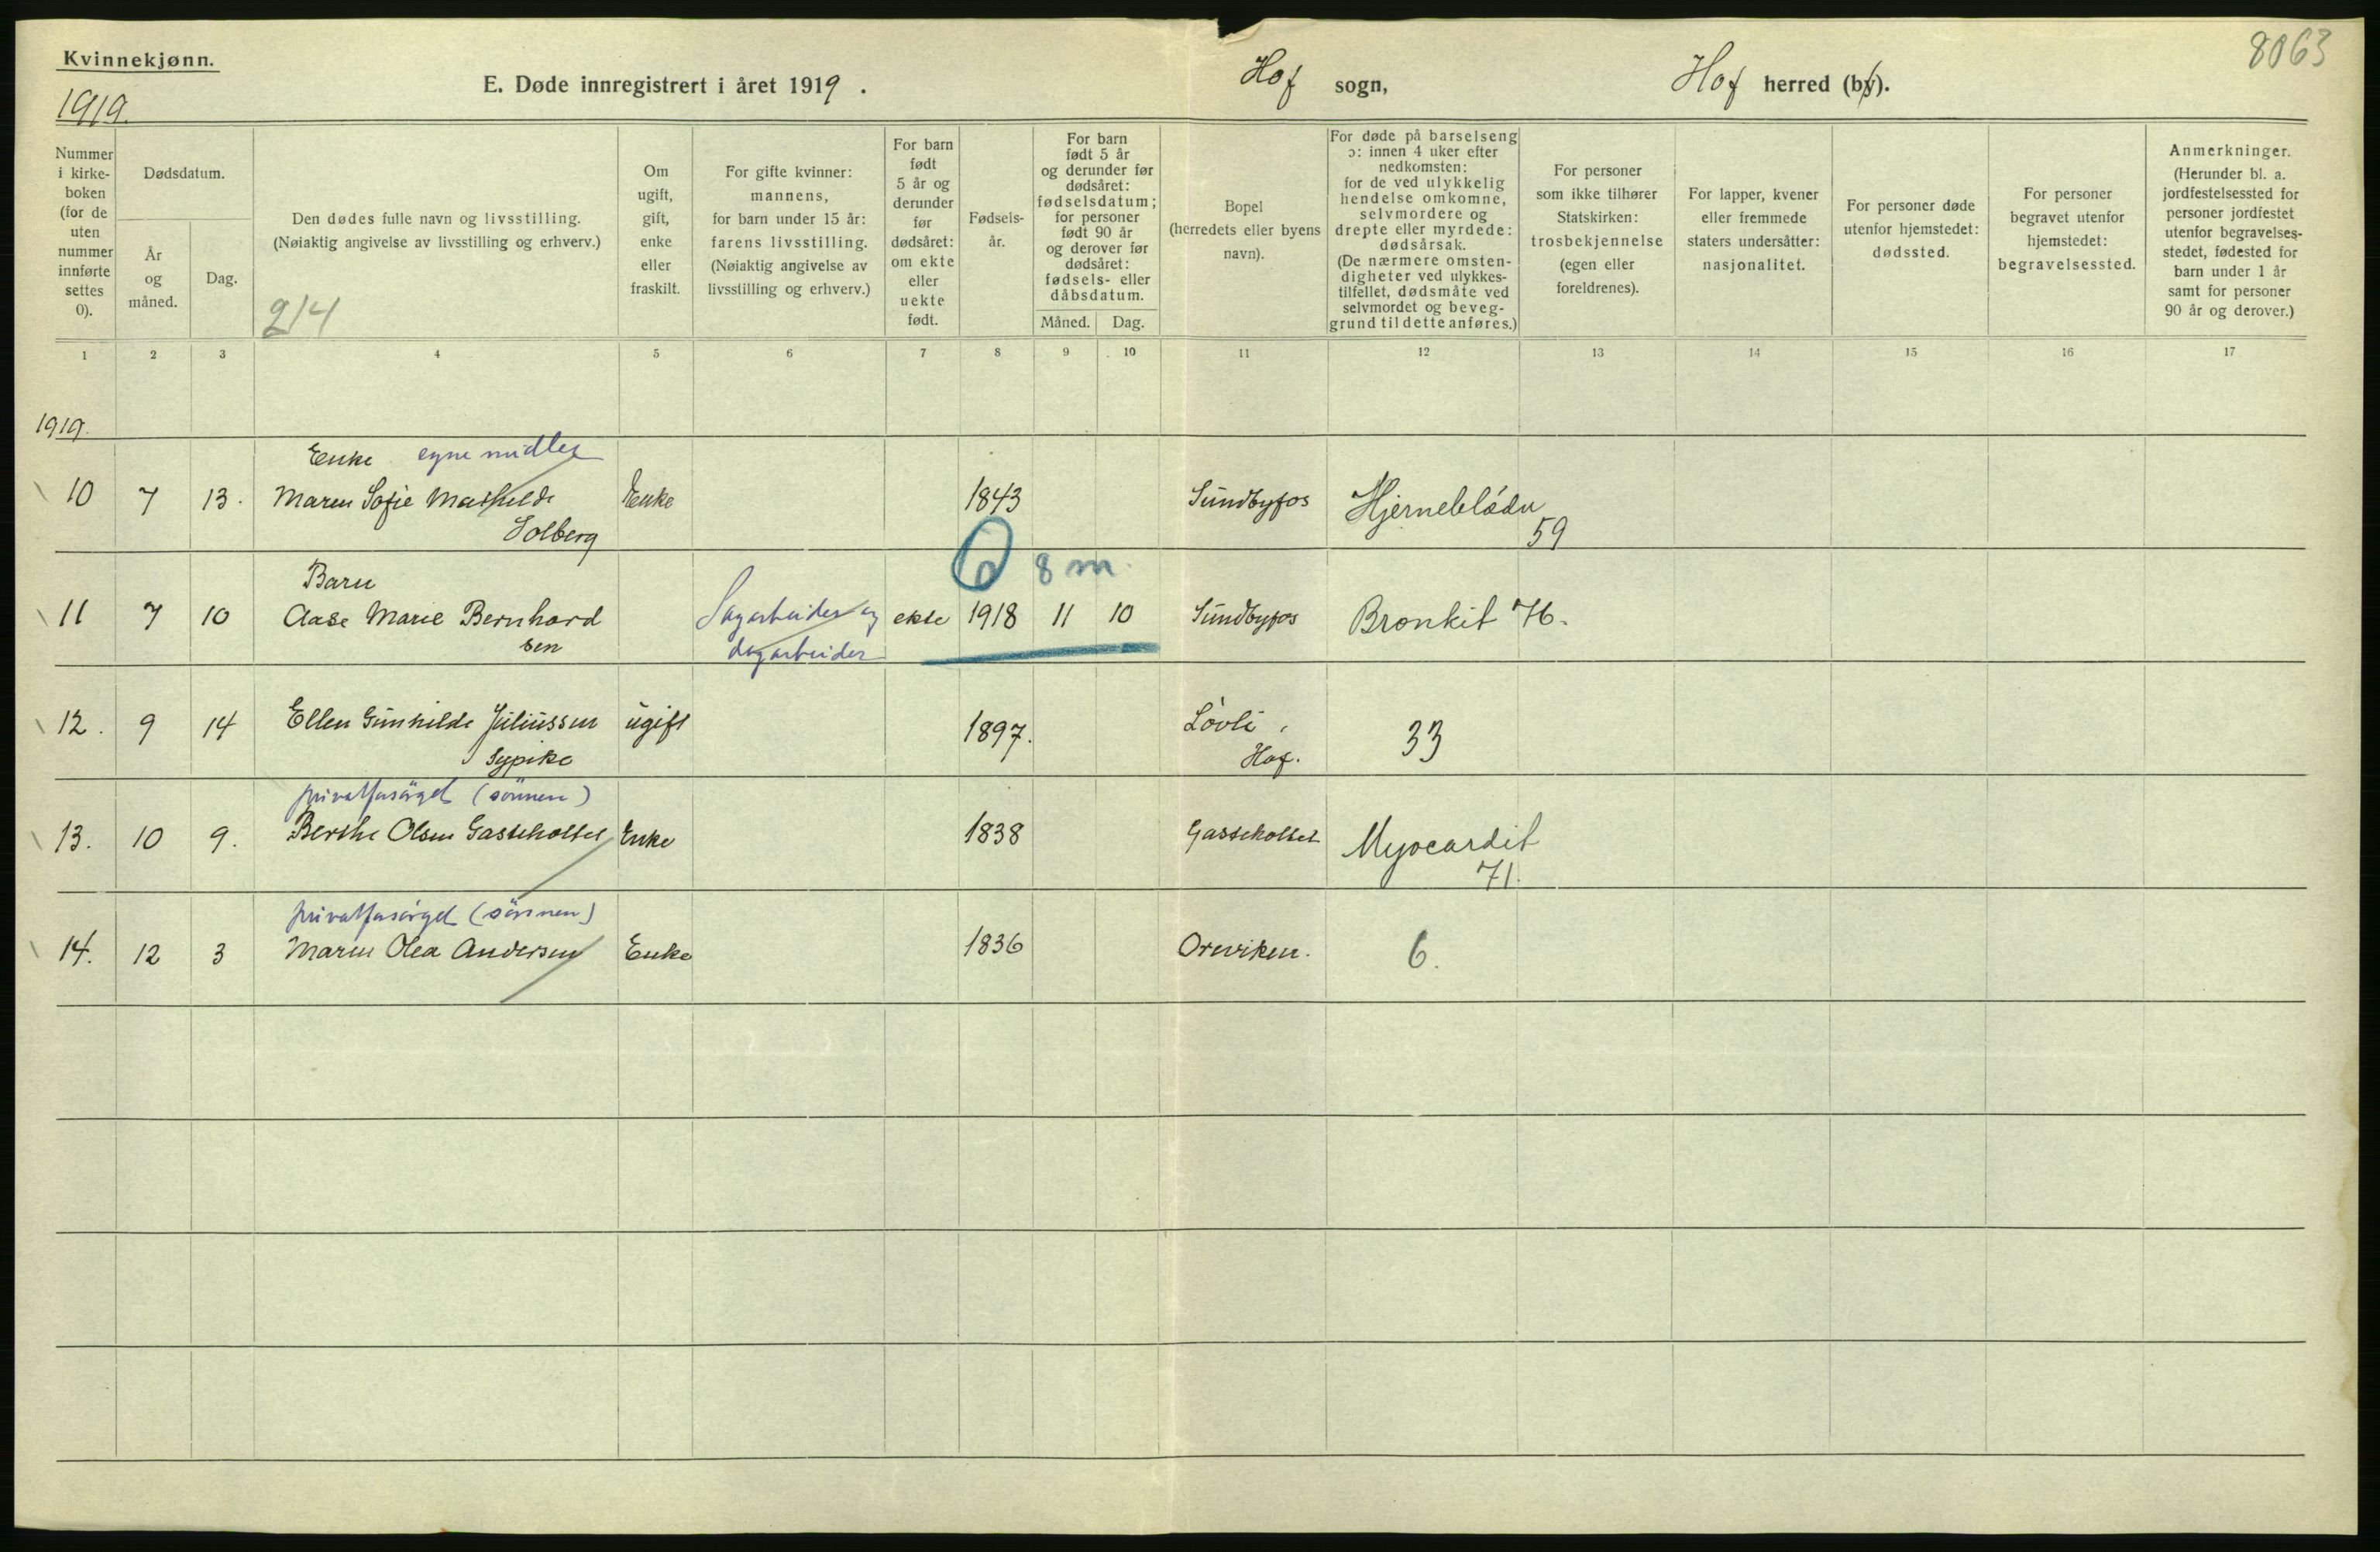 Kvinnekjønn.
1919.
E. Døde innregistrert i året 1919.
Hof sogn,
Hof herred (by).
8063
Nummer i kirke-boken (for de uten nummer innførte settes 0).
Dødsdatum.
År og måned.
Dag.
Den dødes fulle navn og livsstilling.
(Nøiaktig angivelse av livsstilling og erhverv.)
214
Om ugift, gift, enke eller fraskilt.
For gifte kvinner: mannens, for barn under 15 år: farens livsstilling. (Nøiaktig angivelse av livsstilling og erhverv.)
For barn født 5 år og derunder før dødsåret: om ekte eller uekte født.
Fødsels-år.
For barn født 5 år og derunder før dødsåret: fødselsdatum; for personer født 90 år og derover før dødsåret: fødsels- eller dåbsdatum.
Måned.
Dag.
Bopel (herredets eller byens navn).
For døde på barselseng ɔ: innen 4 uker efter nedkomsten: for de ved ulykkelig hendelse omkomne, selvmordere og drepte eller myrdede: dødsårsak. (De nærmere omsten-digheter ved ulykkes-tilfellet, dødsmåte ved selvmordet og beveg-grund til dette anføres.)
For personer som ikke tilhører Statskirken: trosbekjennelse (egen eller foreldrenes).
For lapper, kvener eller fremmede staters undersåtter: nasjonalitet.
For personer døde utenfor hjemstedet: dødssted.
For personer begravet utenfor hjemstedet: begravelsessted.
Anmerkninger. (Herunder bl. a. jordfestelsessted for personer jordfestet utenfor begravelses-stedet, fødested for barn under 1 år samt for personer 90 år og derover.)
1 2 3 4 5 6 7 8 9 10 11 12 13 14 15 16 17
1919.
Enke egne midler
10 7 13. Maren Sofie Mathilde Enke 1843 Sundbyfos Hjerneblødn
Solberg 59
Barn 8 m.
11 7 10 Aase Marie Bernhard Sagarbeider og ekte 1918 11 10 Sundbyfos Bronkit 76.
sen dagarbeider
12. 9 14 Ellen Gunhilde Juliussen ugift 1897. Løvli, 33
Sypike Hof.
privatforsørget (sønnen)
13. 10 9. Berthe Olsen Gasseholtet Enke 1838 Gasseholtet Myocardit
71.
privatforsørget (sønnen)
14. 12 3 Maren Olea Andersen Enke 1836 Oreviken. 6.